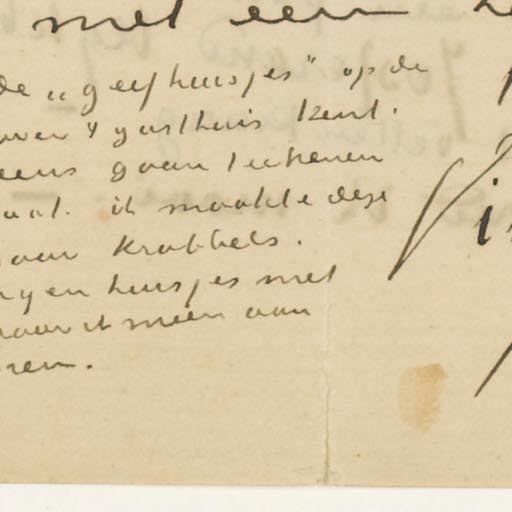 met een
de „geefhuisjes" op de
over 't gasthuis kent.
eens gaan teekenen
ik maakte deze
paar krabbels.
en huisjes met
waar ik meen aan
Vi